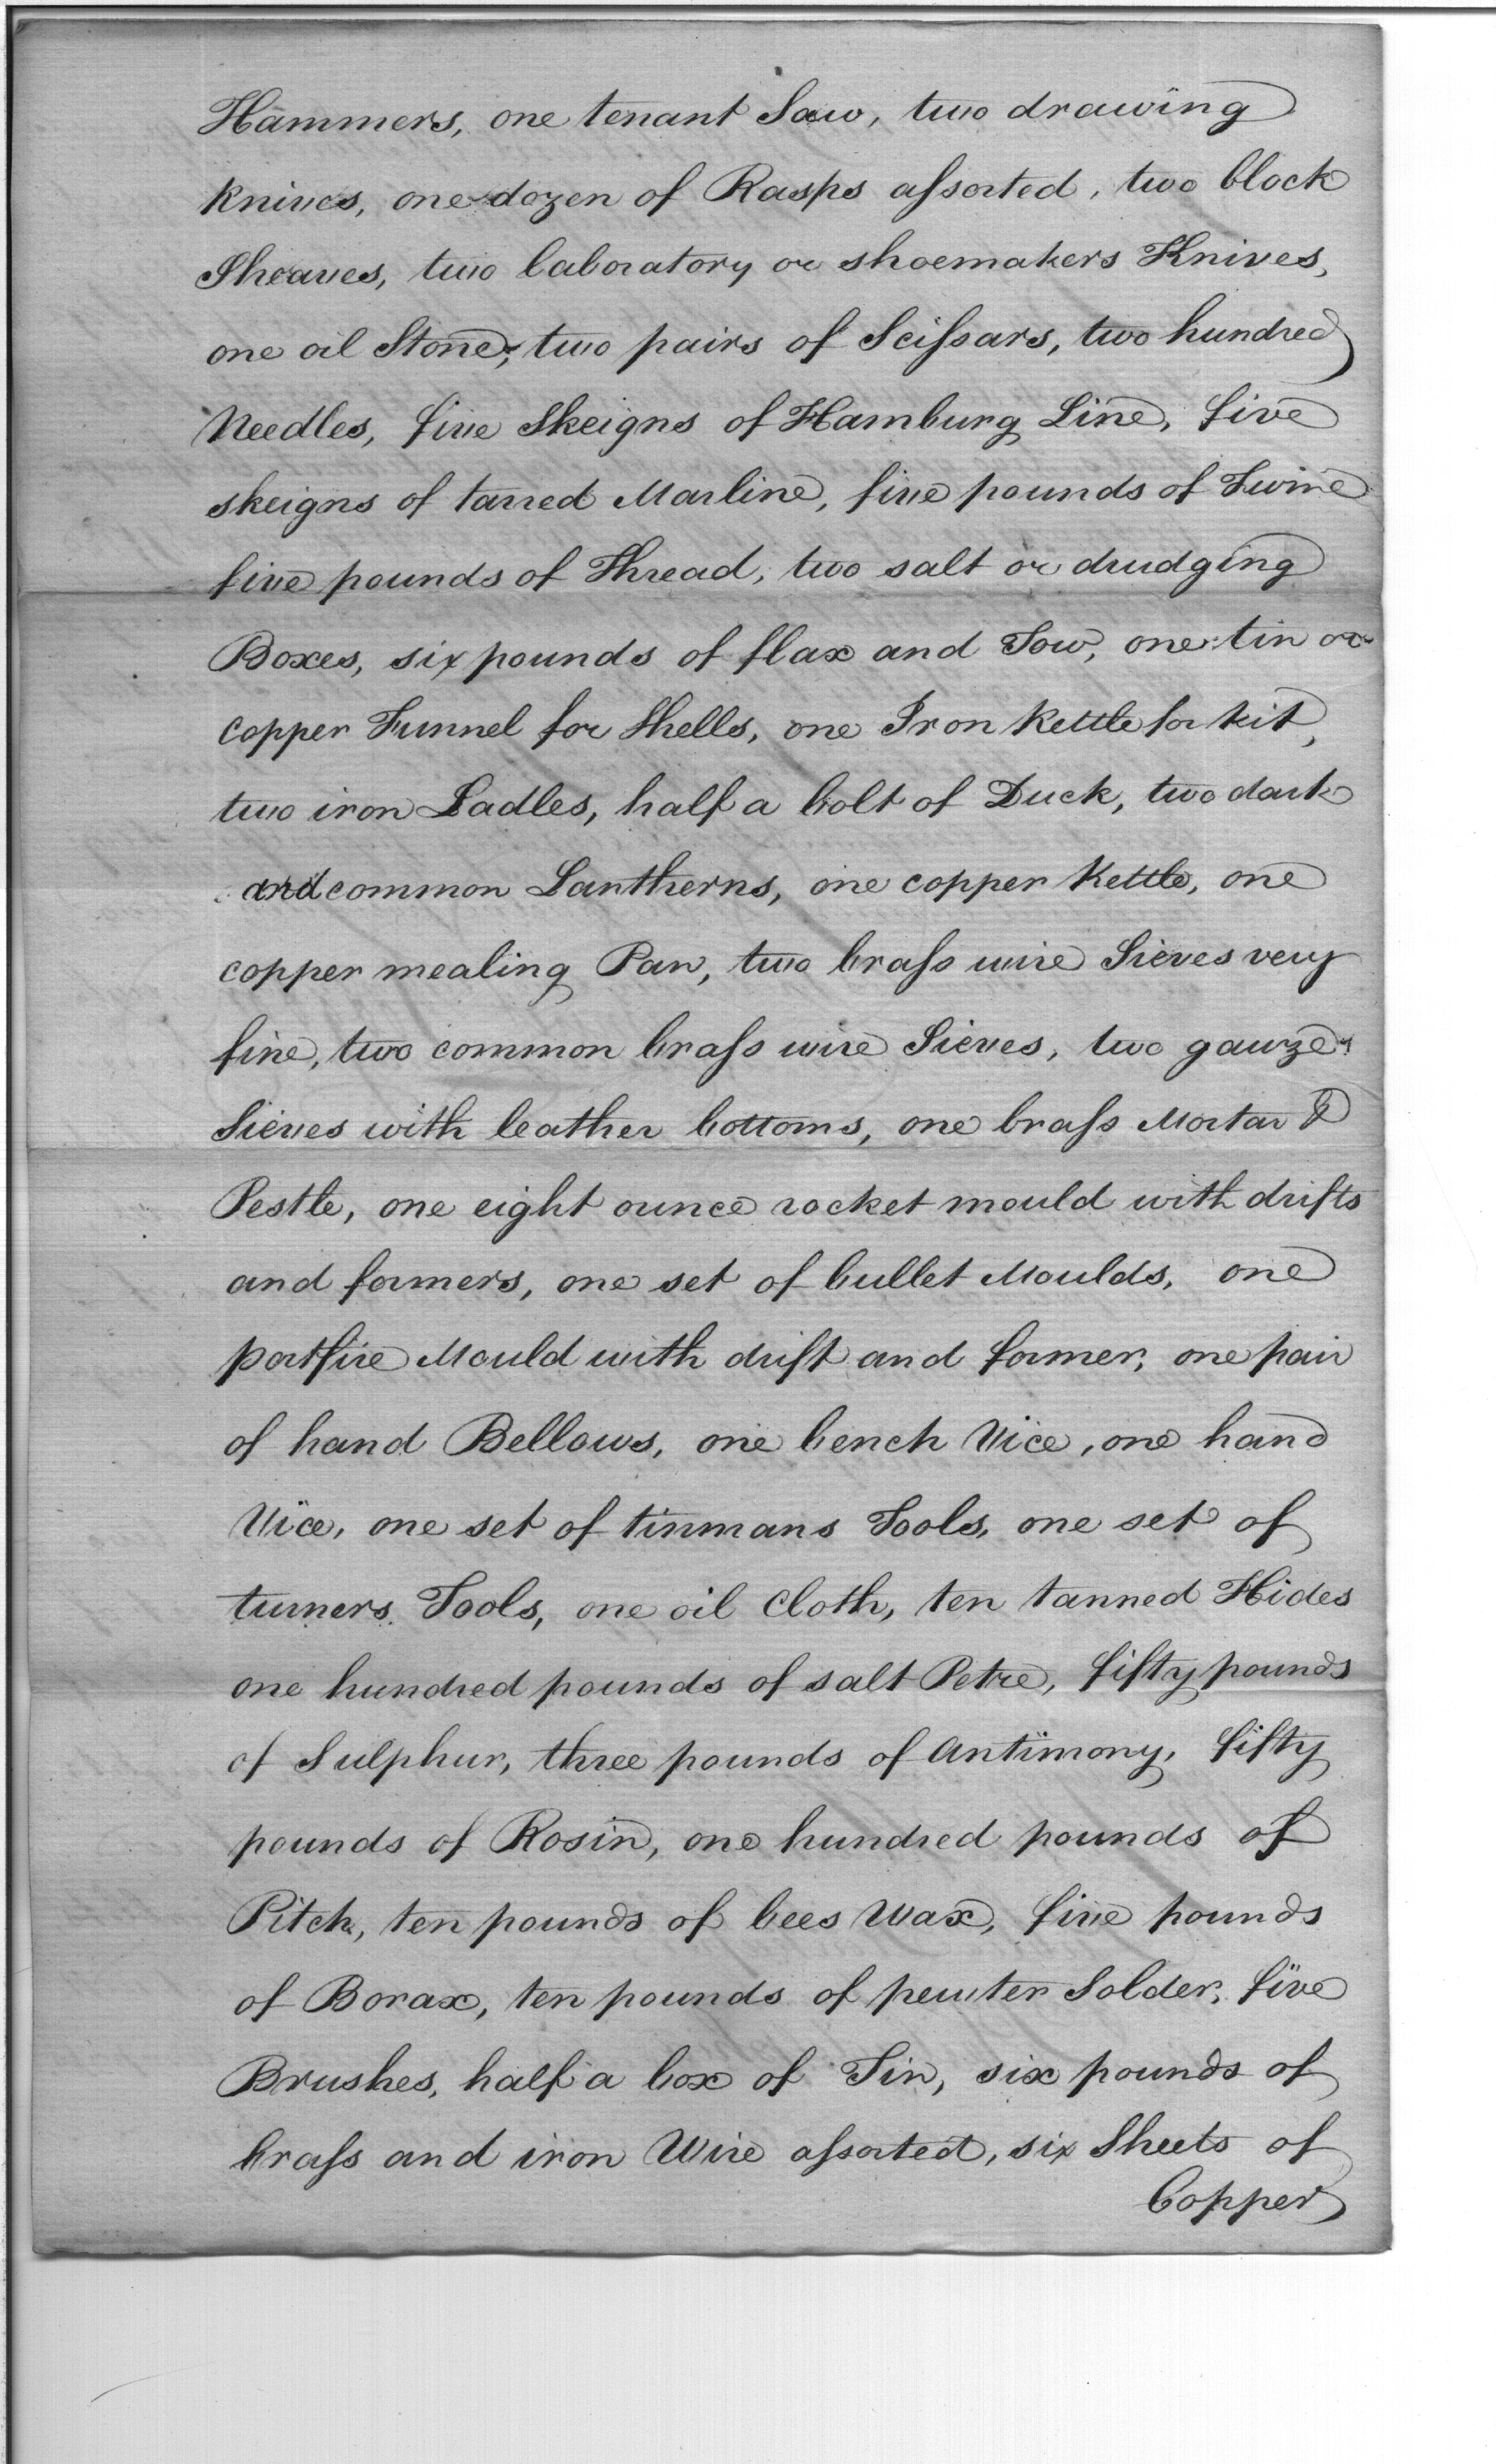 Hammers, one tenant Saw, two drawing
knives, one dozen of Rasps assorted, two block
Sheaves, two laboratory or shoemakers Knives,
one oil Stone, two pairs of Scissars, two hundred
Needles, five Skeigns of Hamburg Line, five
skeigns of tarred Marline, five pounds of Twine
five pounds of Thread, two salt or drudging
Boxes, six pounds of flax and Tow, one tin or
copper Funnel for Shells, one Iron Kettle for kit,
two iron Ladles, half a bolt of Duck, two dark
and common Lantherns, one copper Kettle, one
copper mealing Pan, two brass wire Sieves very
fine, two common brass wire Sieves, two gauze
Sieves with leather bottoms, one brass Mortar &
Pestle, one eight ounce rocket mould with drifts
and formers, one set of bullet Moulds, one
portfire Mould with drift and former, one pair
of hand Bellows, one bench Vice, one hand
Vice, one set of tinmans Tools, one set of
turners Tools, one oil Cloth, ten tanned Hides
one hundred pounds of salt Petre, fifty pounds
of Sulphur, three pounds of Antimony, fifty
pounds of Rosin, one hundred pounds of
Pitch, ten pounds of bees Wax, five pounds
of Borax, ten pounds of pewter Solder, five
Brushes, half a box of Tin, six pounds of
brass and iron Wire assorted, six Sheets of
Copper